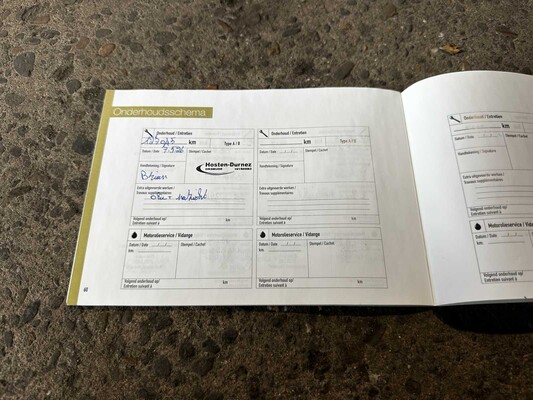 Onderhoudsschema
Onderhoud / Entretien
km
Type A / B
Datum / Date
Stempel / Cachet
Handtekening / Signature
Hosten-Durnez
Extra uitgevoerde werken /
Travaux supplémentaires
Volgend onderhoud op/
Entretien suivant à
km
Motorolieservice / Vidange
Datum / Date
Stempel / Cachet
km
Volgend onderhoud op/
Entretien suivant à
km
Onderhoud / Entretien
km
Type A / B
Datum / Date
Stempel / Cachet
Handtekening / Signature
Extra uitgevoerde werken /
Travaux supplémentaires
Volgend onderhoud op/
Entretien suivant à
km
Motorolieservice / Vidange
Datum / Date
Stempel / Cachet
km
Volgend onderhoud op/
Entretien suivant à
km
60
Onderhoud / Entretien
Datum / Date
Handtekening / Signature
Extra uitgevoerde werken /
Travaux supplémentaires
Volgend onderhoud op/
Entretien suivant à
Datum / Date
km
Volgend onderhoud op/
Entretien suivant à